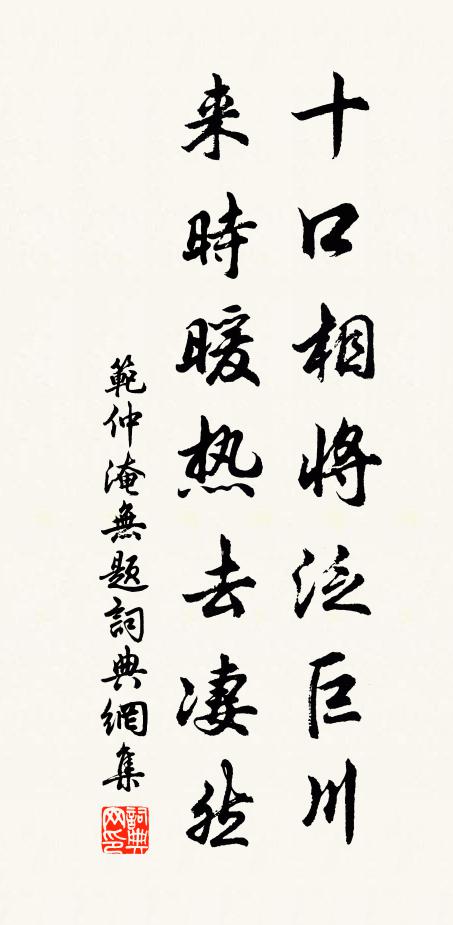 十口相將泛巨川
来時暖热去凄然
範仲淹無題詞典網集
詞典网印